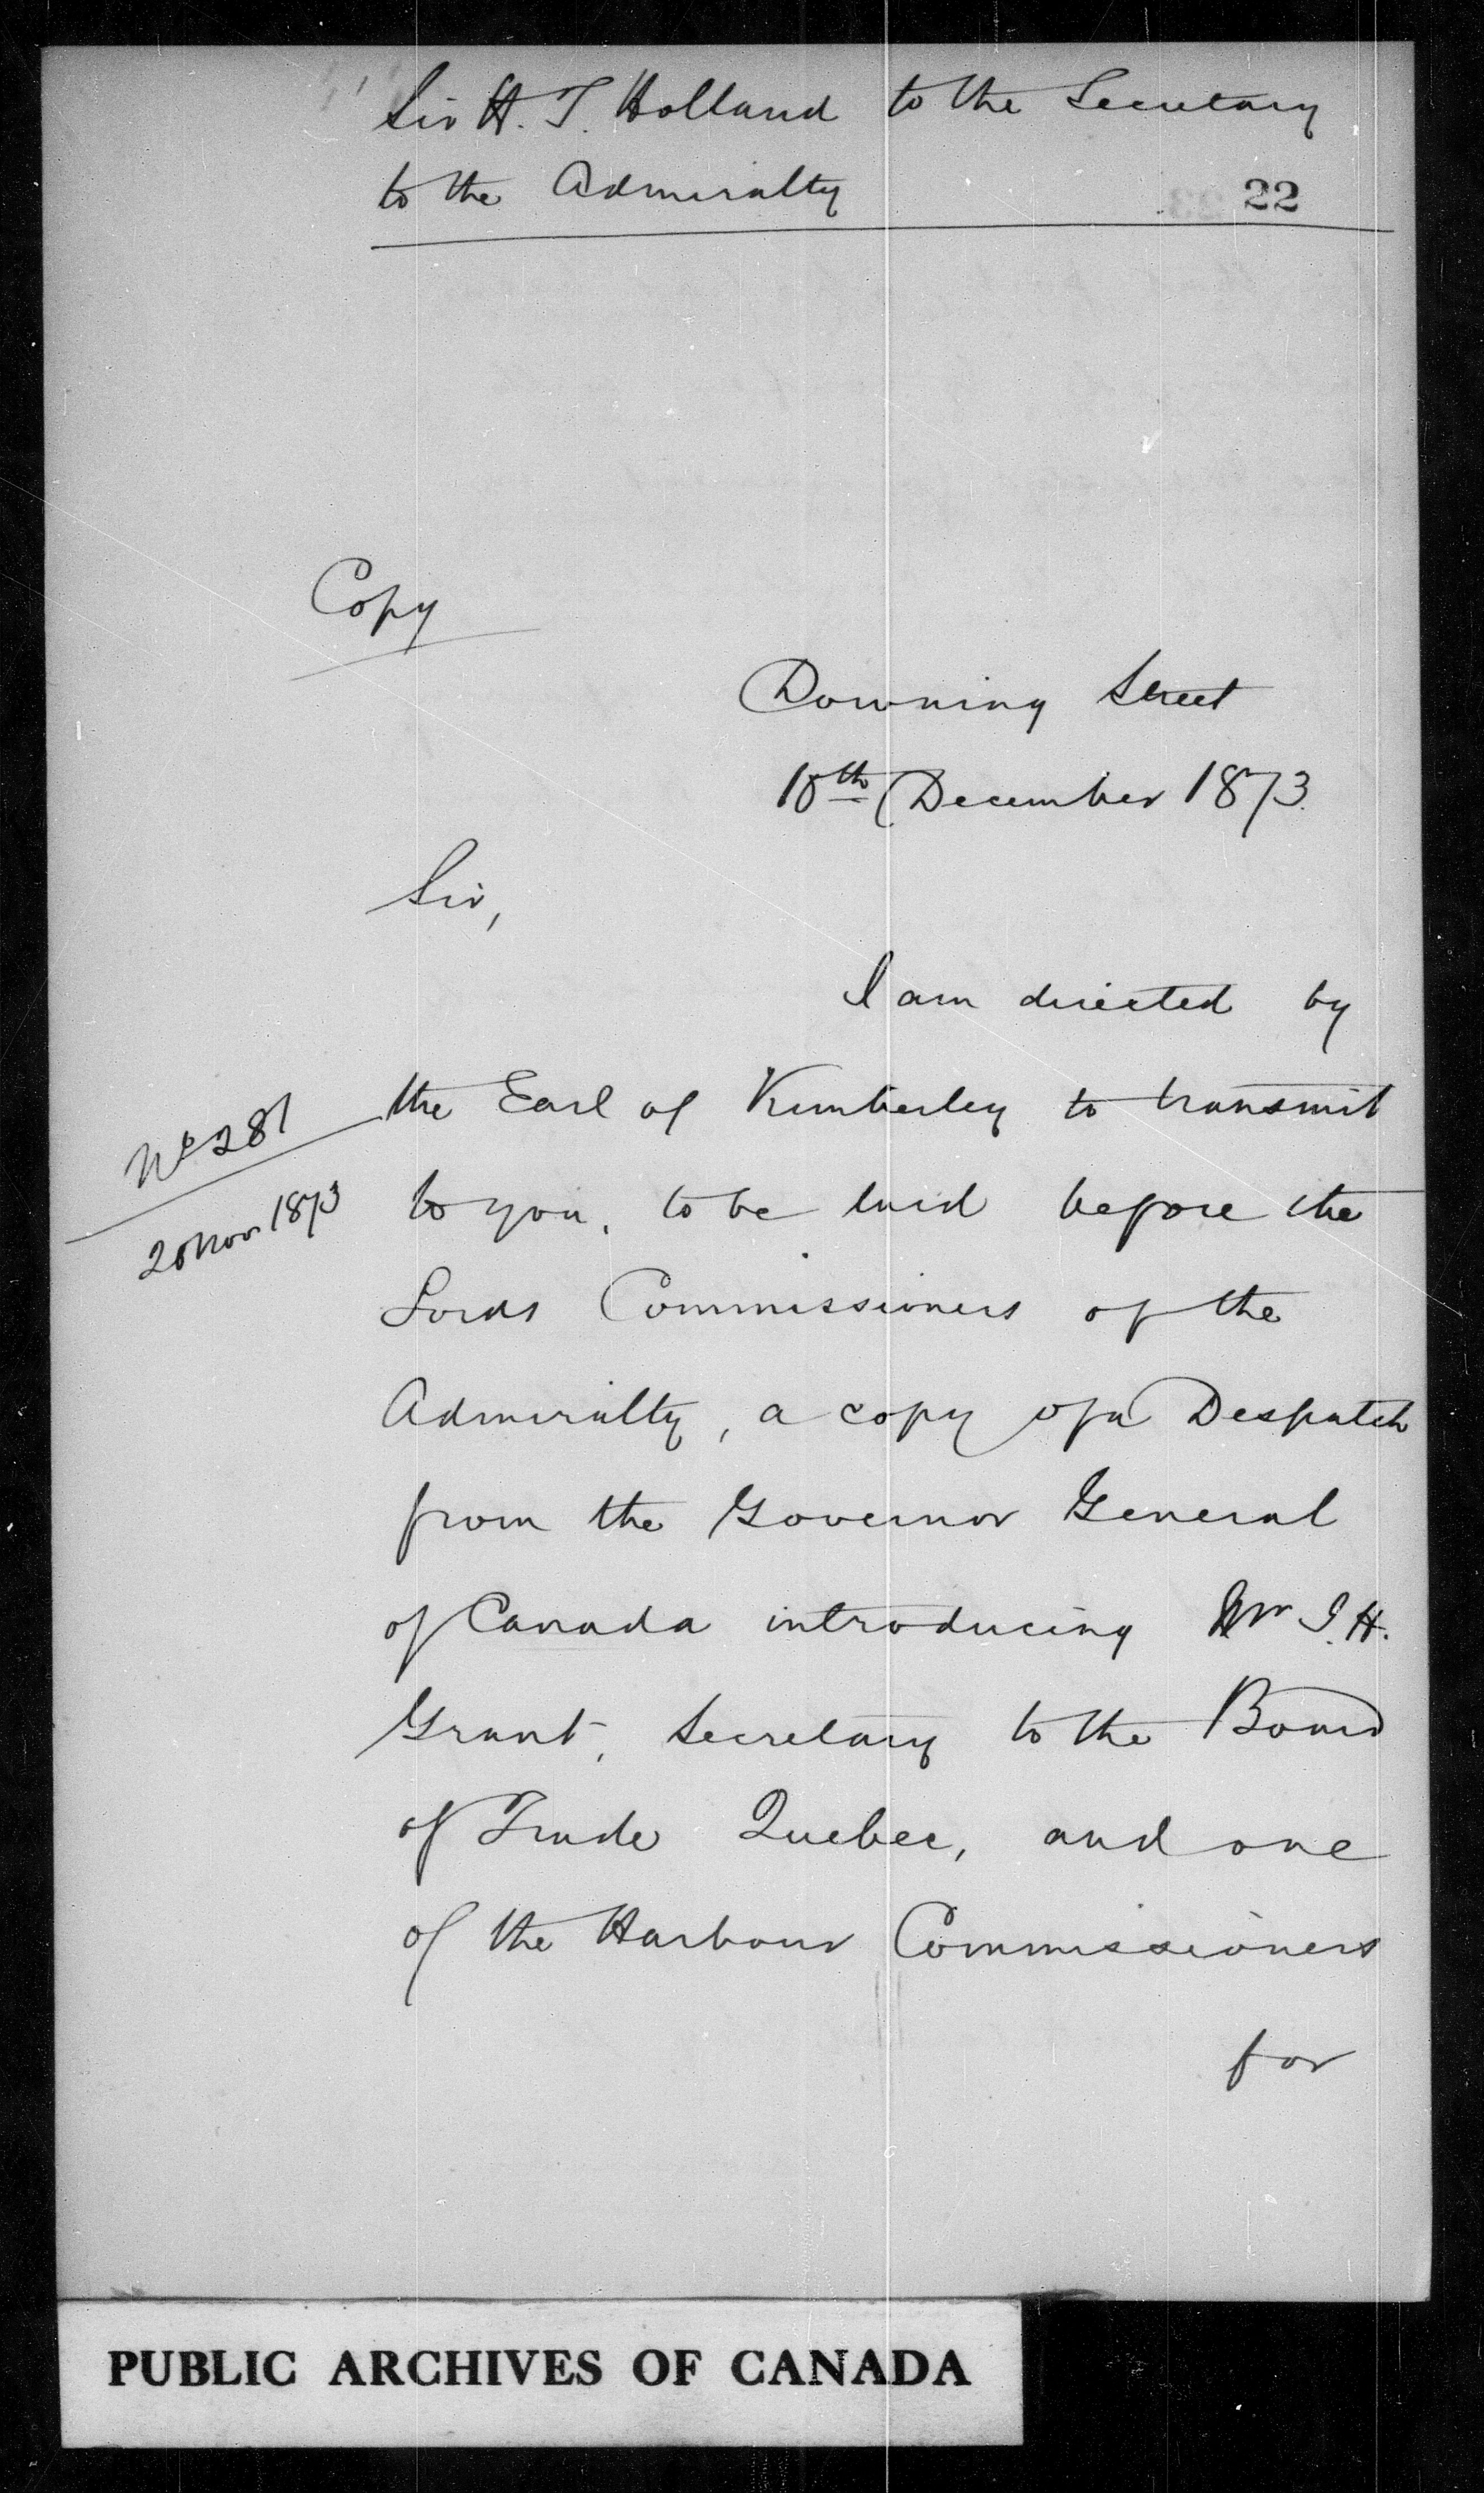 Sir H. T. Holland to the Secretary
to the Admiralty
22
Copy
Downing Street
10th December 1873.
Sir,
I am directed by
the Earl of Kimberley to transmit
No 281
20 Nov 1873
to you, to be laid before the
Lords Commissioners of the
Admiralty, a copy of a Despatch
from the Governor General
of Canada introducing Mr I. H.
Grant, Secretary to the Board
of Trade Quebec, and one
of the Harbour Commissioners
for
PUBLIC ARCHIVES OF CANADA